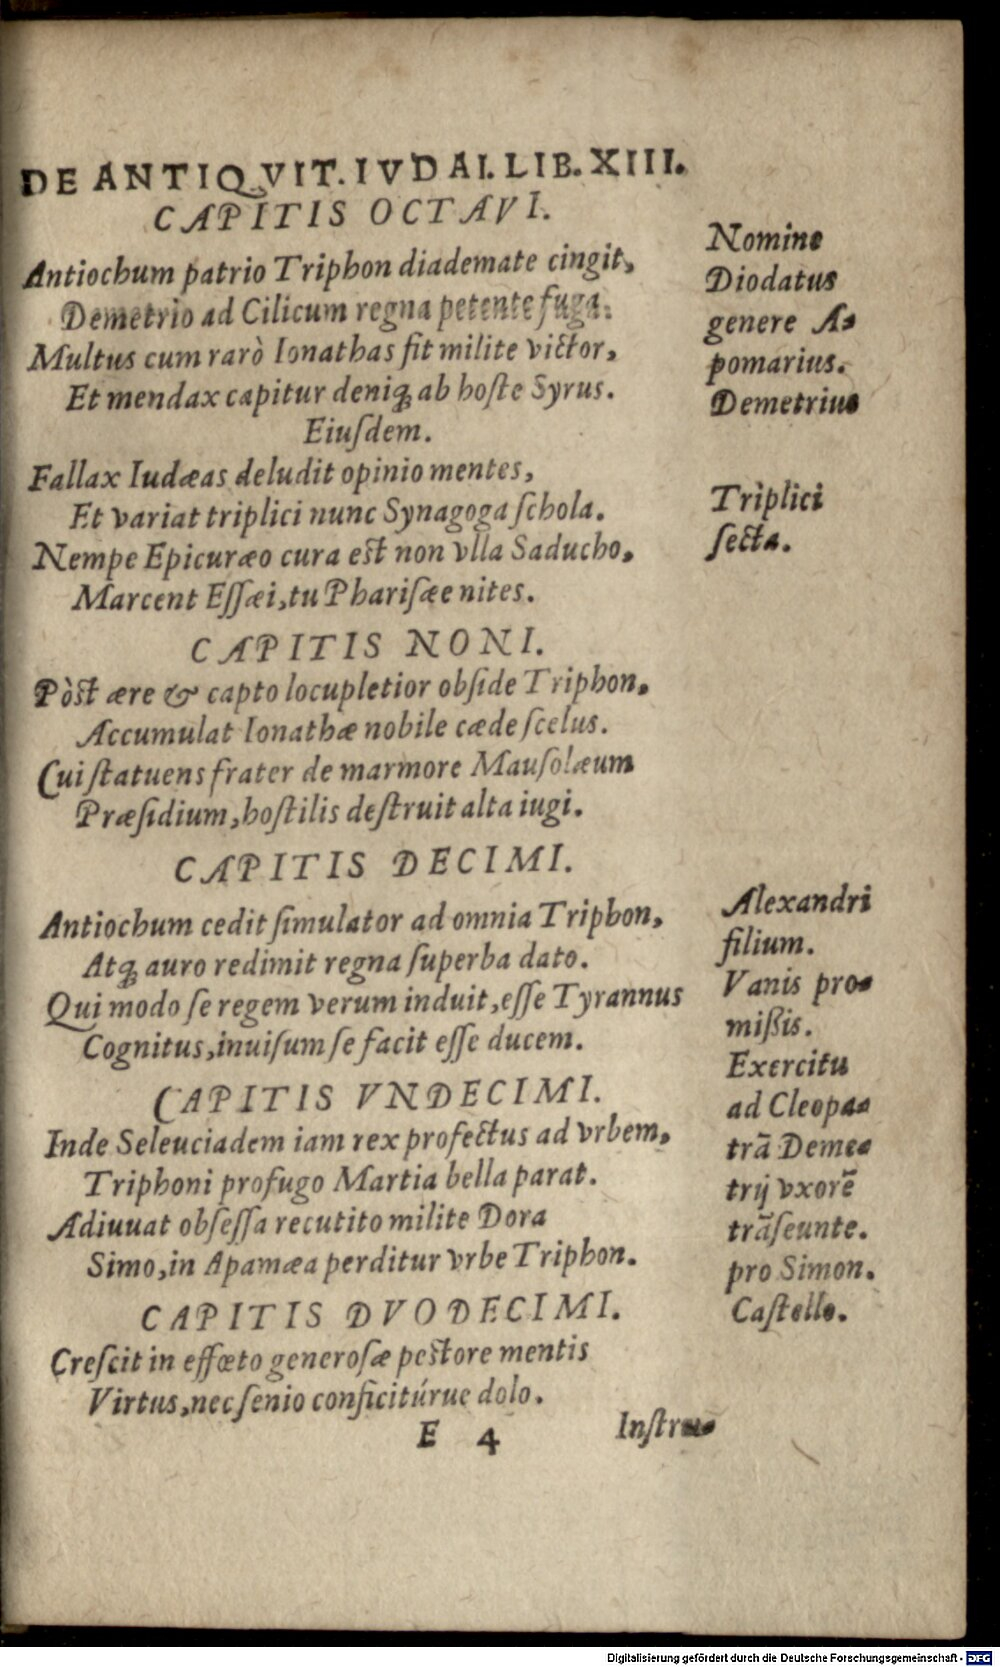 DE ANTIQVIT. IVDAI. LIB. XIII.
CAPITIS OCTAVI.
Antiochum patrio Triphon diademate cingit,
Demetrio ad Cilicum regna petente fuga.
Multus cum rarò Ionathas fit milite victor,
Et mendax capitur deniq; ab hoſte Syrus.
Eiuſdem.
Fallax Iudæas deludit opinio mentes,
Et variat triplici nunc Synagoga ſchola.
Nempe Epicuræo cura est non vlla Saducho,
Marcent Eſſæi, tu Phariſæe nites.
CAPITIS NONI.
Pòst ære & capto locupletior obſide Triphon,
Accumulat Ionathæ nobile cæde ſcelus.
Cui ſtatuens frater de marmore Mauſolæum
Præſidium, hoſtilis deſtruit alta iugi.
CAPITIS DECIMI.
Antiochum cedit ſimulator ad omnia Triphon,
Atq; auro redimit regna ſuperba dato.
Qui modo ſe regem verum induit, eſſe Tyrannus
Cognitus, inuiſum ſe facit eſſe ducem.
CAPITIS VNDECIMI.
Inde Seleuciadem iam rex profectus ad vrbem,
Triphoni profugo Martia bella parat.
Adiuuat obſeſſa recutito milite Dora
Simo, in Apamæa perditur vrbe Triphon.
CAPITIS DVODECIMI.
Creſcit in effœto generoſæ pectore mentis
Virtus, nec ſenio conficitúrue dolo.
E 4
Inſtru-
Nomine
Diodatus
genere A-
pomarius.
Demetrius
Triplici
ſecta.
Alexandri
filium.
Vanis pro-
mißis.
Exercitu
ad Cleopa-
trā Deme-
trij vxorē
trāſeunte.
pro Simon.
Caſtello.
Digitalisierung gefördert durch die Deutsche Forschungsgemeinschaft - DFG